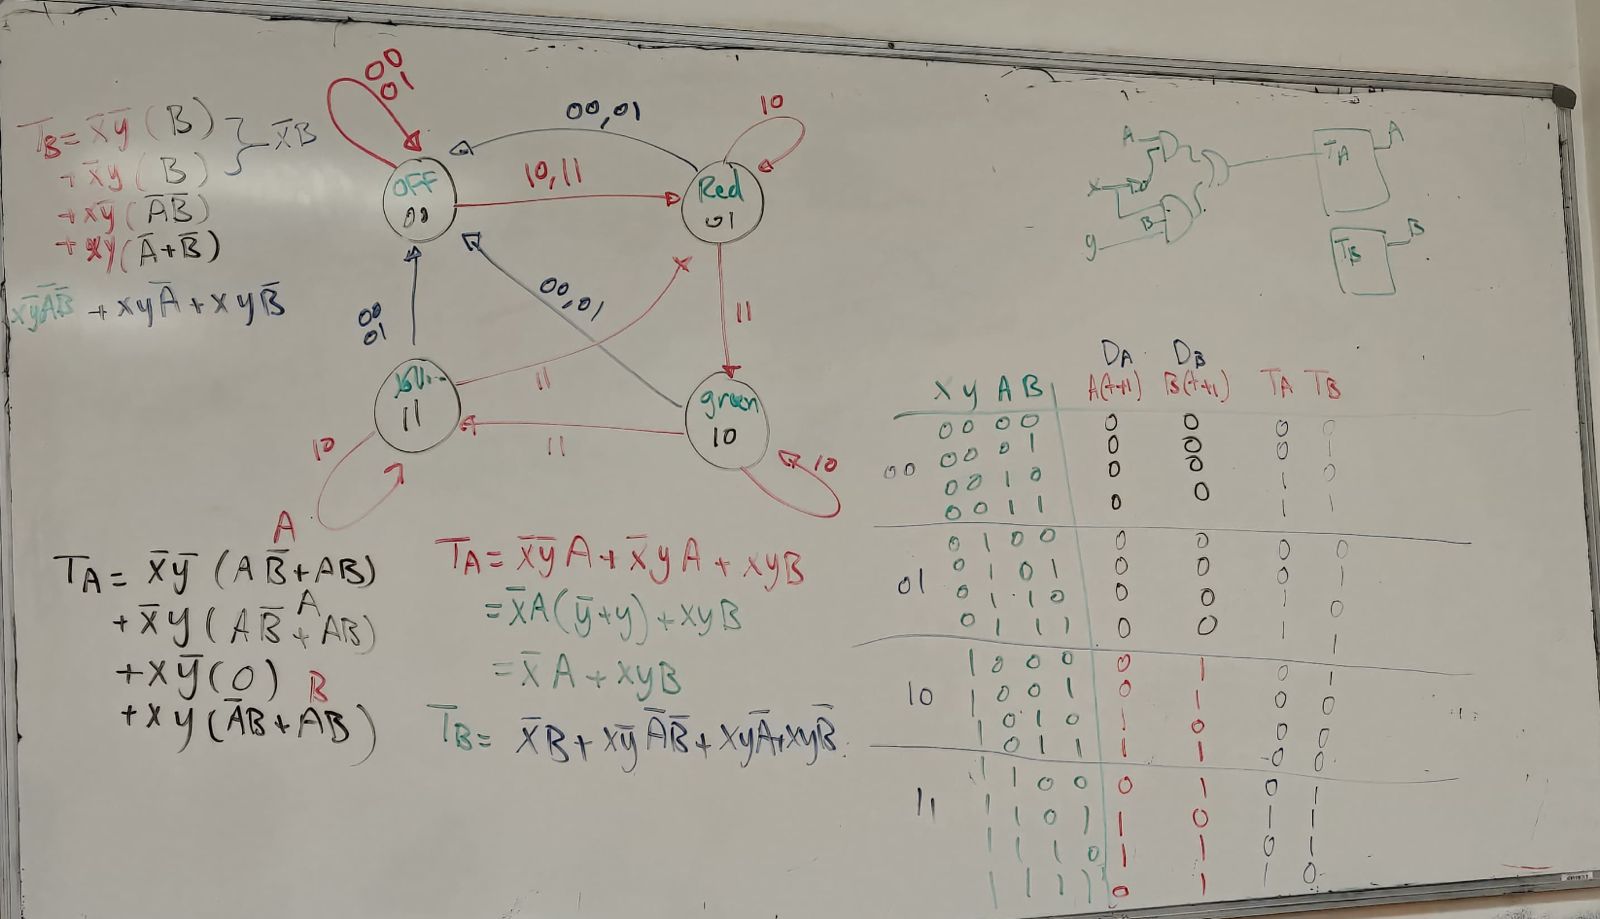 T_B = x̄ȳ (B) } x̄B
+ x̄y (B)
+ xȳ (ĀB̄)
+ xy (Ā+B̄)
xȳĀB̄ + xyĀ + xyB̄
00
01
OFF
00
00,01
10,11
10
Red
01
00
01
00,01
11
11
11
10
11
green
10
10
A
T_A = x̄ȳ (AB̄+AB)
A
+ x̄y (AB̄+AB)
+ xȳ (0)
B
+ xy (ĀB+AB)
T_A = x̄ȳA + x̄yA + xyB
= x̄A(ȳ+y) + xyB
= x̄A + xyB
T_B = x̄B + xȳĀB̄ + xyĀ+xyB̄
A
x
B
y
T_A A
T_B B
D_A D_B
X y A B A(t+1) B(t+1) T_A T_B
00
0 0 0 0 0 0 0 0
0 0 0 1 0 0 0 1
0 0 1 0 0 0 1 0
0 0 1 1 0 0 1 1
01
0 1 0 0 0 0 0 0
0 1 0 1 0 0 0 1
0 1 1 0 0 0 1 0
0 1 1 1 0 0 1 1
10
1 0 0 0 0 1 0 1
1 0 0 1 0 1 0 0
1 0 1 0 1 0 0 0
1 0 1 1 1 1 0 0
11
1 1 0 0 0 1 0 1
1 1 0 1 1 0 1 1
1 1 1 0 1 1 0 1
1 1 1 1 0 1 1 0